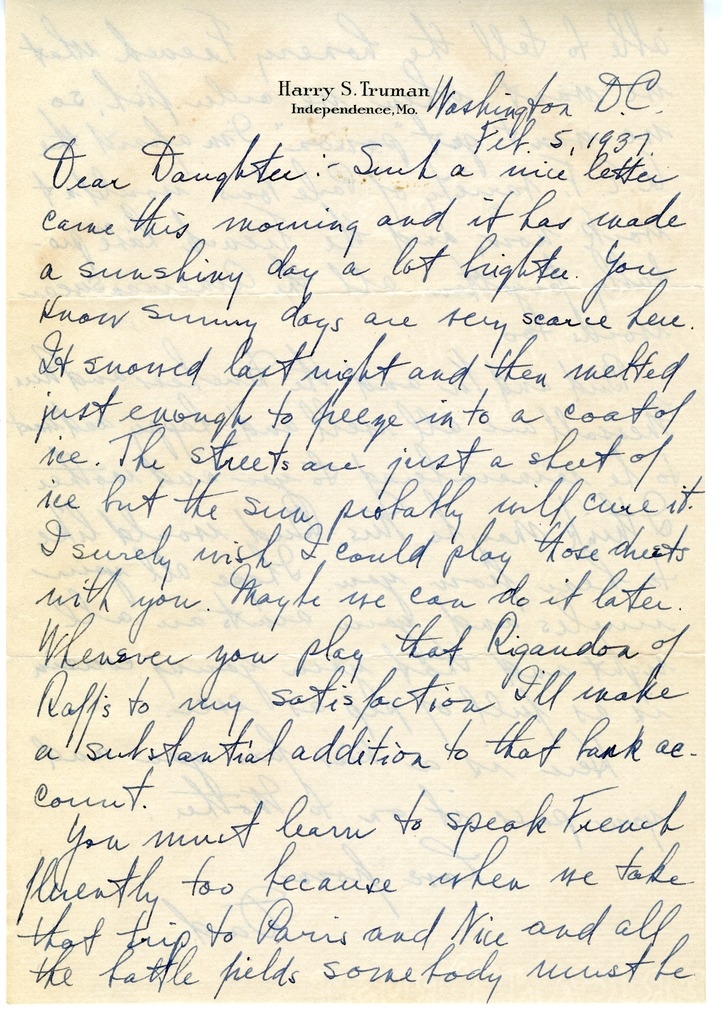 Harry S. Truman
Independence, Mo.
Washington D.C.
Feb. 5, 1937.
Dear Daughter:- Such a nice letter
came this morning and it has made
a sunshiny day a lot brighter. You
know sunny days are very scarce here.
It snowed last night and then melted
just enough to freeze into a coat of
ice. The streets are just a sheet of
ice but the sun probably will cure it.
I surely wish I could play those duets
with you. Maybe we can do it later.
Whenever you play that Rigaudon of
Raff's to my satisfaction I'll make
a substantial addition to that bank ac-
count.
You must learn to speak French
fluently too because when we take
that trip to Paris and Nice and all
the battle fields somebody must be